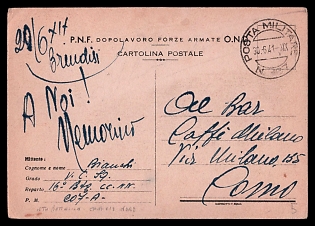 20/6 XIX
Brindisi
P.N.F. DOPOLAVORO FORZE ARMATE O.N.D.
CARTOLINA POSTALE
POSTA MILITARE
30.6.41.XIX
A Noi!
Al Bar
Caffè Milano
Via Milano, 155
Como
Mittente:
Cognome e nome Bianchi
Grado V. C. Sq.
Reparto 16° Btg cc. nn.
P. M. 207-A-